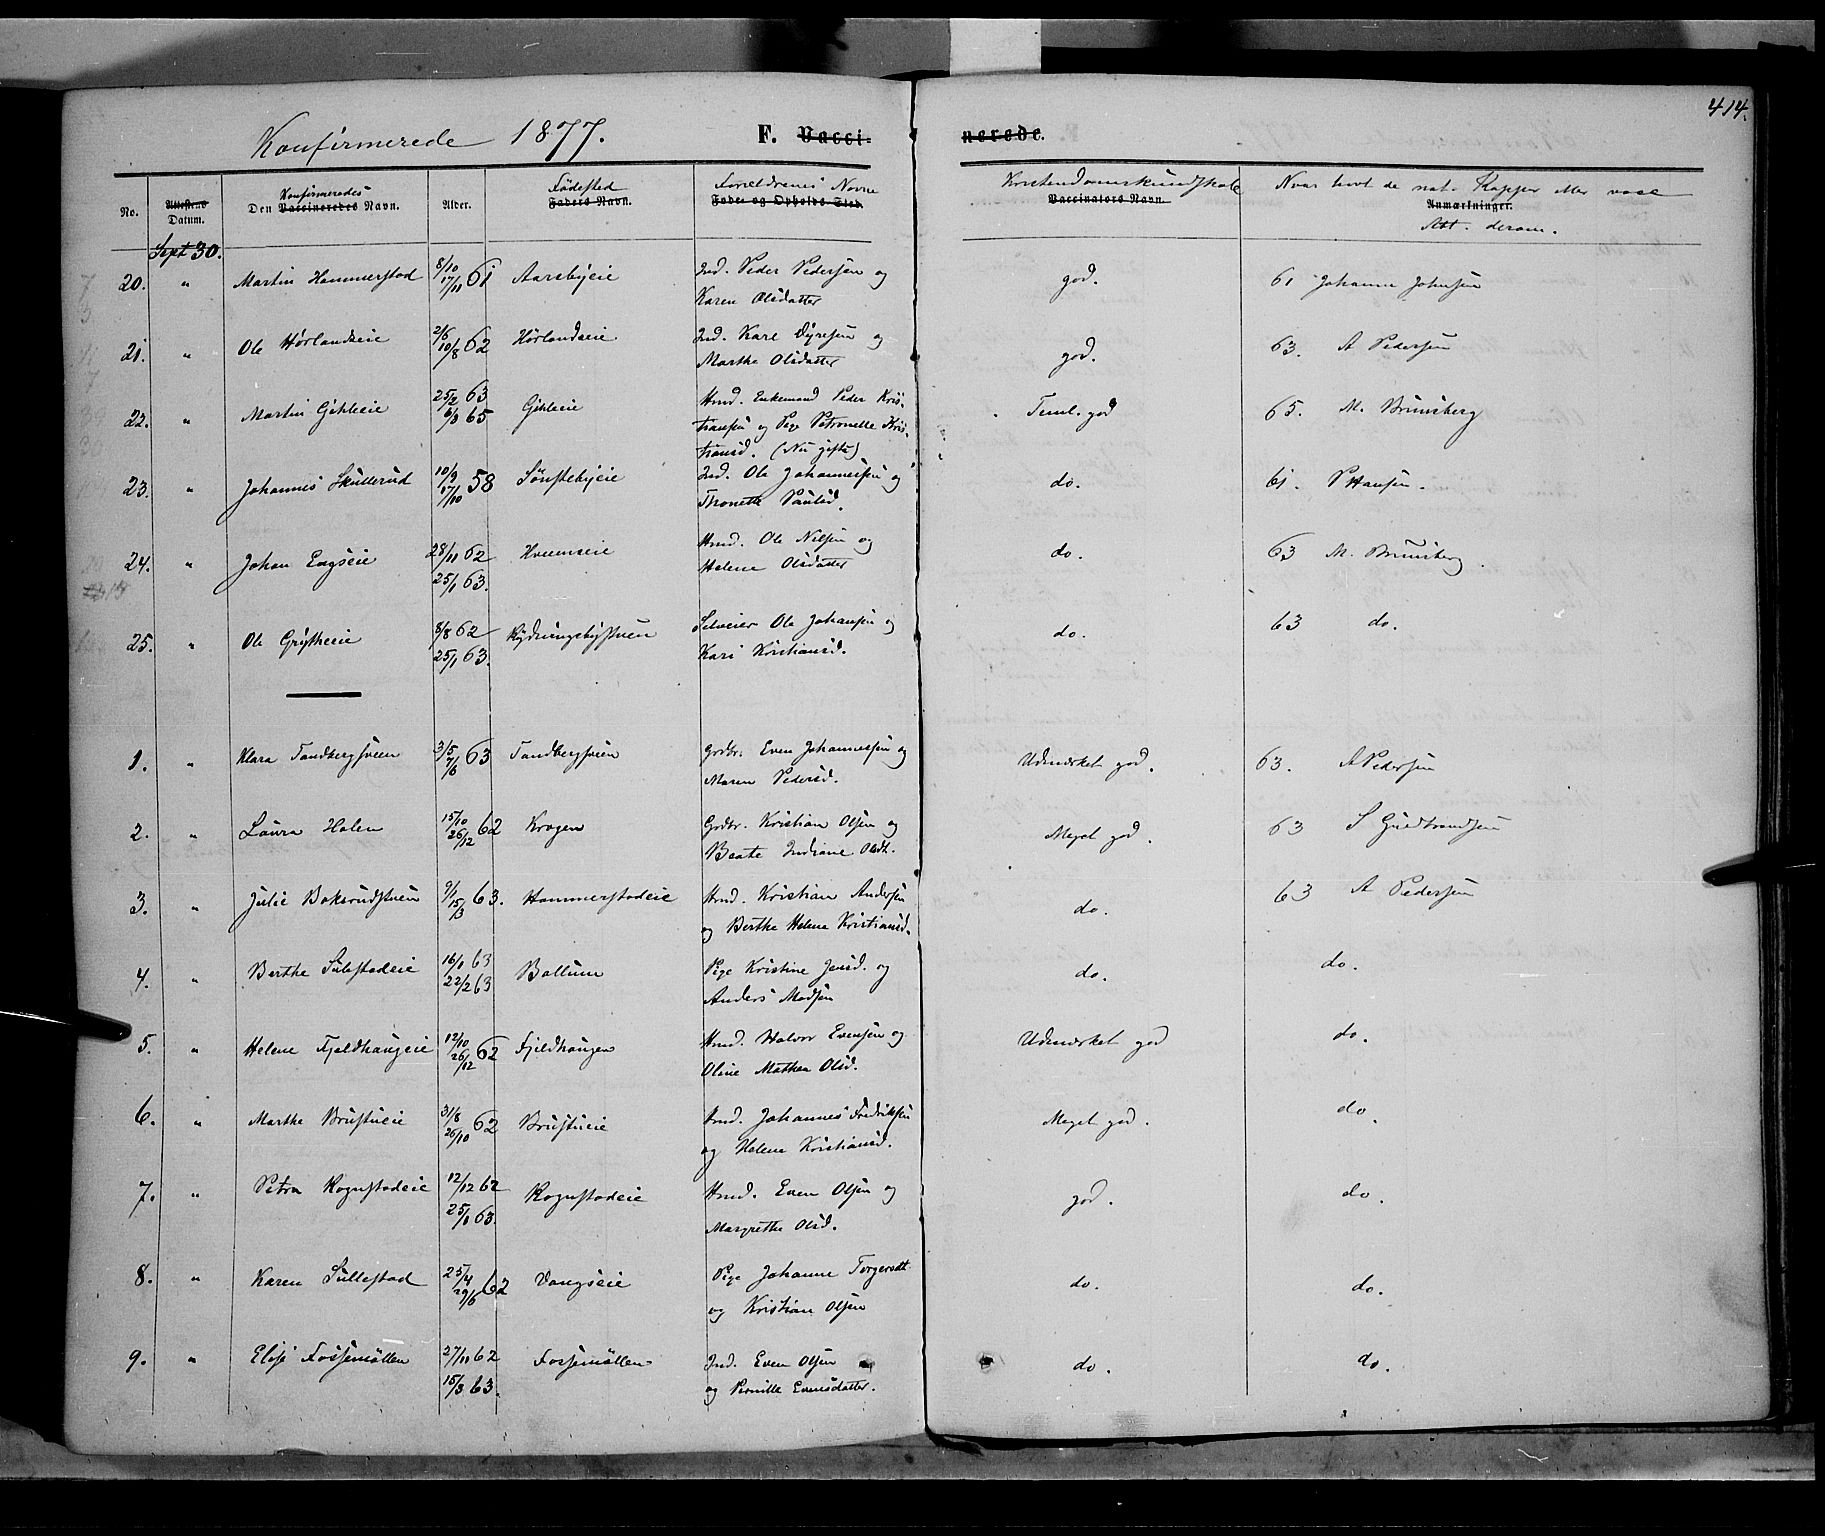 414.
Konfirmerede 1877. F. Vaccinerede.
No. Attestens Datum. Den Konfirmeredes Vaccineredes Navn. Alder. Fødested Faders Navn. Forældrenes Navne Fader og Opholds Sted. Kristendomskundskab Vaccinators Navn. Naar havt de nat. Kopper eller vacc Anmærkninger. Att. derom.
Sept 30.
20. " Martin Hammerstad 8/10 17/11 61 Aarsbyeie Ind. Peder Pedersen og god. 61 Johanne Johnsen
Karen Olsdatter
21. " Ole Hørlandseie 2/6 10/8 62 Hørlandseie Ind. Karl Dyresen og god. 63. A Pedersen
Marthe Olsdatter
22. " Martin Gihleie 25/2 63 6/3 65 Gihleie Hmd. Enkemand Peder Kris- Teml. god 65. M. Brunsberg
tiansen og Pige Petronelle Kris-
tiansd. (Nu gifte)
23. " Johannes Skullerud 10/9 17/10 58 Sønstebyeie Ind. Ole Johannessen og do. 61. P Hansen.
Thonette Paulsd.
24. " Johan Engseie 28/11 62 25/1 63. Hveemseie Hmd. Ole Nilsen og do. 63 M. Brunsberg.
Helene Olsdatter
25. " Ole Grytheeie 8/8 62 25/1 63. Rydningsbystuen Selveier Ole Johansen og do. 63 do.
Kari Kristiansd.
1. " Klara Tandbergsveen 3/5 7/6 63 Tandbergsveen Grdbr. Even Johannessen og Udmærket god. 63. A Pedersen
Maren Pedersd.
2. " Laura Holen 15/10 26/12 62 Krogen Grdbr. Kristian Olsen og Meget god. 63 S Gudbrandsen
Beate Indiane Olsdt.
3. " Julie Boksrudstuen 9/1 15/3 63. Hammerstadeie Hmd. Kristian Andersen do. 63 A Pedersen
og Berthe Helene Kristiansd.
4. " Berthe Sulestadeie 16/1 63 22/2 63 Bollum Pige Kristine Jensd. og do. do.
Anders Madsen
5. " Helene Fjeldhaugeie 12/10 26/12 62 Fjeldhaugen Hmd. Halvor Evensen og Udmærket god do.
Oline Mathea Olsd.
6. " Marthe Brustueie 31/8 26/10 62 Brustueie Hmd. Johannes Fredriksen Meget god. do.
og Helene Kristiansd.
7. " Petra Rognstadeie 12/12 62 25/1 63. Rognstadeie Hmd. Even Olsen og god. do.
Margrethe Olsd.
8. " Karen Sullestad 25/4 29/6 62 Vangseie Pige Johanne Torgersdt. do. do.
og Kristian Olsen
9. " Elise Fossemøllen 27/11 62 15/3 63. Fossemøllen Ind. Even Olsen do. do.
og Pernille Evensdatter.